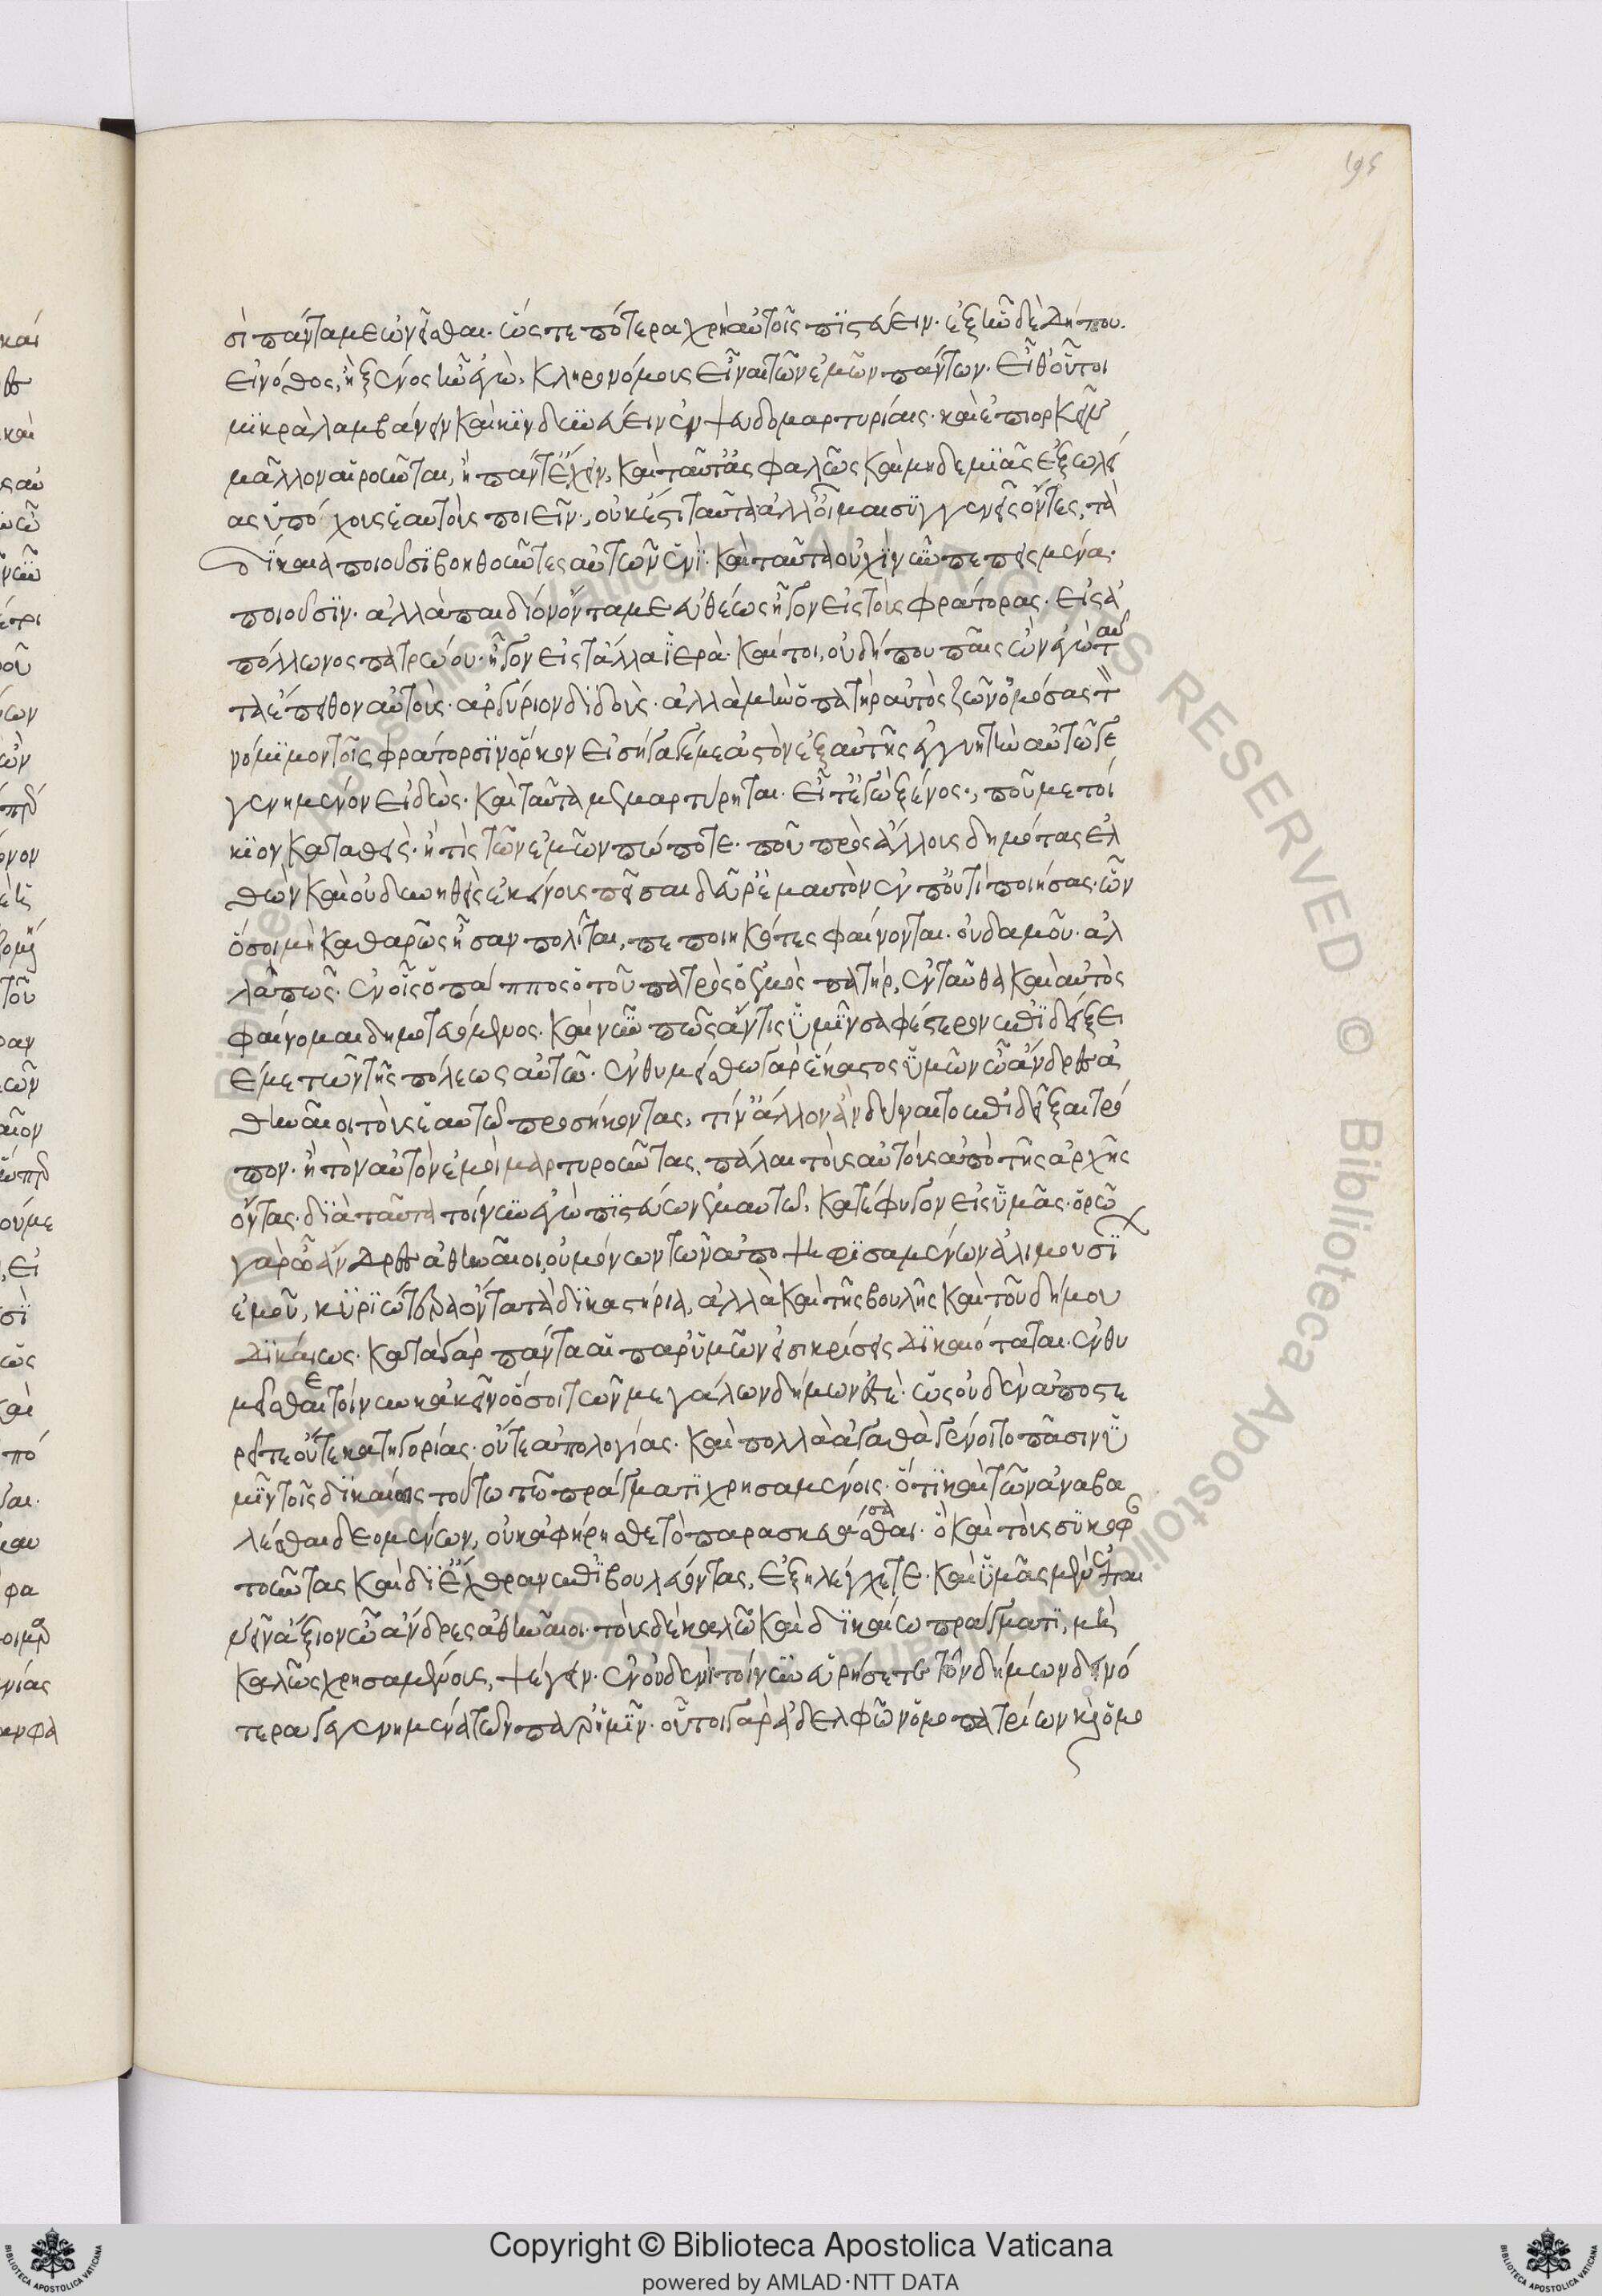 195
σὶ πάντα με ὠνεῖσθαι. ὥς τε πότερα χρὴ αὐτοῖς πϊστεύειν. ἐξῆν δὲ δήπου.
εἰ νόθος, ἢ ξένος ἦν ἐγὼ, κληρονόμοις εἶναι τῶν ἐμῶν πάντων. εἶθ οὗτοι
μϊκρὰ λαμβάνειν καὶ κϊνδυνεύειν ἐν ψευδομαρτυρίαις. καὶ ἐπιορκεῖν
μᾶλλον αἱροῦνται, ἢ πάντ ἔχειν, καὶ ταῦτ ἀσφαλῶς καὶ μηδεμϊᾶς ἐξωλεί
ας ὑπόχους ἑαυτοὺς ποιεῖν., οὐκ ἔστι ταῦτα ἀλλ οἶμαι συγγενεῖς ὄντες, τὰ
δίκαια ποιοῦσϊ βοηθοῦντες αὐτῶν ἑνϊ. καὶ ταῦτα οὐχϊ νῦν πεπεισμένα.
ποιοῦσϊν. ἀλλὰ παιδίον ὄντα με εὐθέως ἦγον εἰς τοὺς φράτορας. εἰς ἀ
πόλλωνος πατρώου. ἦγον εἰς τἆλλα ἱερά. καίτοι, οὐ δήπου παῖς ὢν ἐγὼ ταῦ
τα ἔπειθον αὐτοὺς. ἀργύριον διδοὺς. ἀλλὰ μὴν ὁ πατὴρ αὐτὸς ζῶν ὀμόσας τὸν
νόμϊμον τοῖς φράτορσϊν ὅρκον εἰσήγαγέ με ἀστὸν ἐξ ἀστῆς ἐγγυητῆς αὐτῷ γε
γενημένον εἰδὼς. καὶ ταῦτα μεμαρτύρηται. εἶτ ἐγὼ ξένος., ποῦ μετοί
κϊον καταθεὶς. ἢ τὶς τῶν ἐμῶν πώποτε. ποῦ πρὸς ἄλλους δημότας ἐλ
θὼν καὶ οὐ δυνηθεὶς ἐκείνους πεῖσαι δεῦρ ἐμαυτὸν ἐν ποῦ τὶ ποιήσας. ὧν
ὅσοι μὴ καθαρῶς ἦσαν πολῖται, πεποιηκότες φαίνονται. οὐδαμοῦ. ἀλ
λ ἁπλῶς. ἐν οἷς ὁ πάππος ὁ τοῦ πατρὸς ὁ ἐμὸς πατήρ, ἐνταῦθα καὶ αὐτὸς
φαίνομαι δημοτευόμενος. καὶ νῦν πῶς ἄν τις ὑμϊν σαφέστερον ἐπϊδείξει
ἐμὲ τῶν τῆς πόλεως αὐτῶ. ἐνθυμείσθω γὰρ ἕκαστος ὑμῶν ὦ ἄνδρες ἀ
θηναῖοι τοὺς ἑαυτῶ προσήκοντας, τίν ἄλλον ἂν δύναιτο ἐπιδεῖξαι τρό
πον. ἢ τὸν αὐτὸν ἐμοὶ μαρτυροῦντας, πάλαι τοὺς αὐτοὺς ἀπὸ τῆς ἀρχῆς
ὄντας. διὰ ταῦτα τοίνυν ἐγὼ πϊστεύων ἐμαυτῶ, κατέφυγον εἰς ὑμᾶς. ὁρῶ
γὰρ ὦ ἄνδρες ἀθηναῖοι, οὐ μόνων τῶν ἀποψηφϊσαμένων ἁλιμουσϊ
ἐμοῦ, κυρϊώτερα ὄντα τὰ δϊκαστήρια, ἀλλὰ καὶ τῆς βουλῆς καὶ τοῦ δήμου
δϊκαίως. κατὰ γὰρ πάντα αἱ παρ ὑμῶν εἰσι κρίσεις δϊκαιόταται. ἐνθυ
μεῖσθαι τοίνυν κἀκεῖνο ὅσοι τῶν μεγάλων δήμων ἐστὲ. ὡς οὐδένα ἀποστε
ρεῖτε οὔτε κατηγορίας. οὔτε ἀπολογίας. καὶ πολλὰ ἀγαθὰ γένοιτο πᾶσιν ὑ
μῖν τοῖς δικαίως τούτω τῶ πράγματι χρησαμένοις. ὅτϊ καὶ τῶν ἀναβα
λέσθαι δεομένων, οὐκ ἀφήρησθε τὸ παρασκευάσασθαι. ὃ καὶ τοὺς συκοφ
τοῦντας καὶ δϊ ἔχθραν ἐπϊβουλεύοντας, ἐξηλέγχετε. καὶ ὑμᾶς μὲν ἐπαι
νεῖν ἄξιον ὦ ἄνδρες ἀθηναῖοι. τοὺς δὲ καλῶ καὶ δϊκαίω πράγματϊ, μὴ
καλῶς χρησαμένους, ψέγειν. ἐν οὐδενὶ τοίνυν εὑρήσετε τῶν δήμων δεινό
τερα γεγενημένα τῶν παρ ἡμῖν. οὗτοι γὰρ ἀδελφῶν ὁμοπατρίων καὶ ὁμο